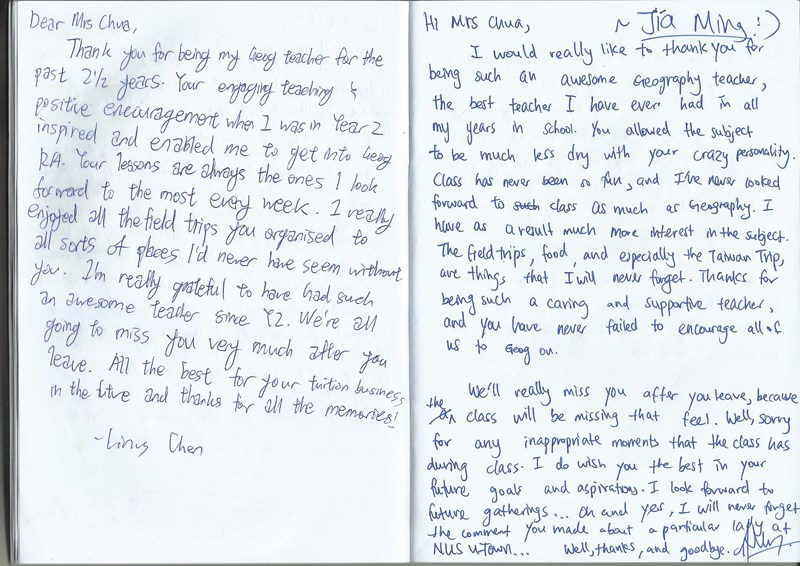 Dear Mrs Chua,
Thank you for being my Geog teacher for the
past 2 1/2 years. Your engaging teaching &
positive encouragement when I was in Year 2
inspired and enabled me to get into Geog
RA. Your lessons are always the ones I look
forward to the most every week. I really
enjoyed all the field trips you organised to
all sorts of places I'd never have seem without
you. I'm really grateful to have had such
an awesome teacher since Y2. We're all
going to miss you very much after you
leave. All the best for your tuition business
in the future and thanks for all the memories!
-Linus Chen
Hi Mrs Chua, ~ Jia Ming :)
I would really like to thank you for
being such an awesome Geography teacher,
the best teacher I have ever had in all
my years in school. You allowed the subject
to be much less dry with your crazy personality.
Class has never been so fun, and I've never looked
forward to such class as much as Geography. I
have as a result much more interest in the subject.
The field trips, food, and especially the Taiwan Trip,
are things that I will never forget. Thanks for
being such a caring and supportive teacher,
and you have never failed to encourage all of
us to Geog on.
We'll really miss you after you leave, because
the class will be missing that feel. Well, sorry
for any inappropriate moments that the class has
during class. I do wish you the best in your
future goals and aspirations. I look forward to
future gatherings... Oh and yes, I will never forget
the comment you made about a particular lady at
NUS UTown... Well, thanks, and goodbye.